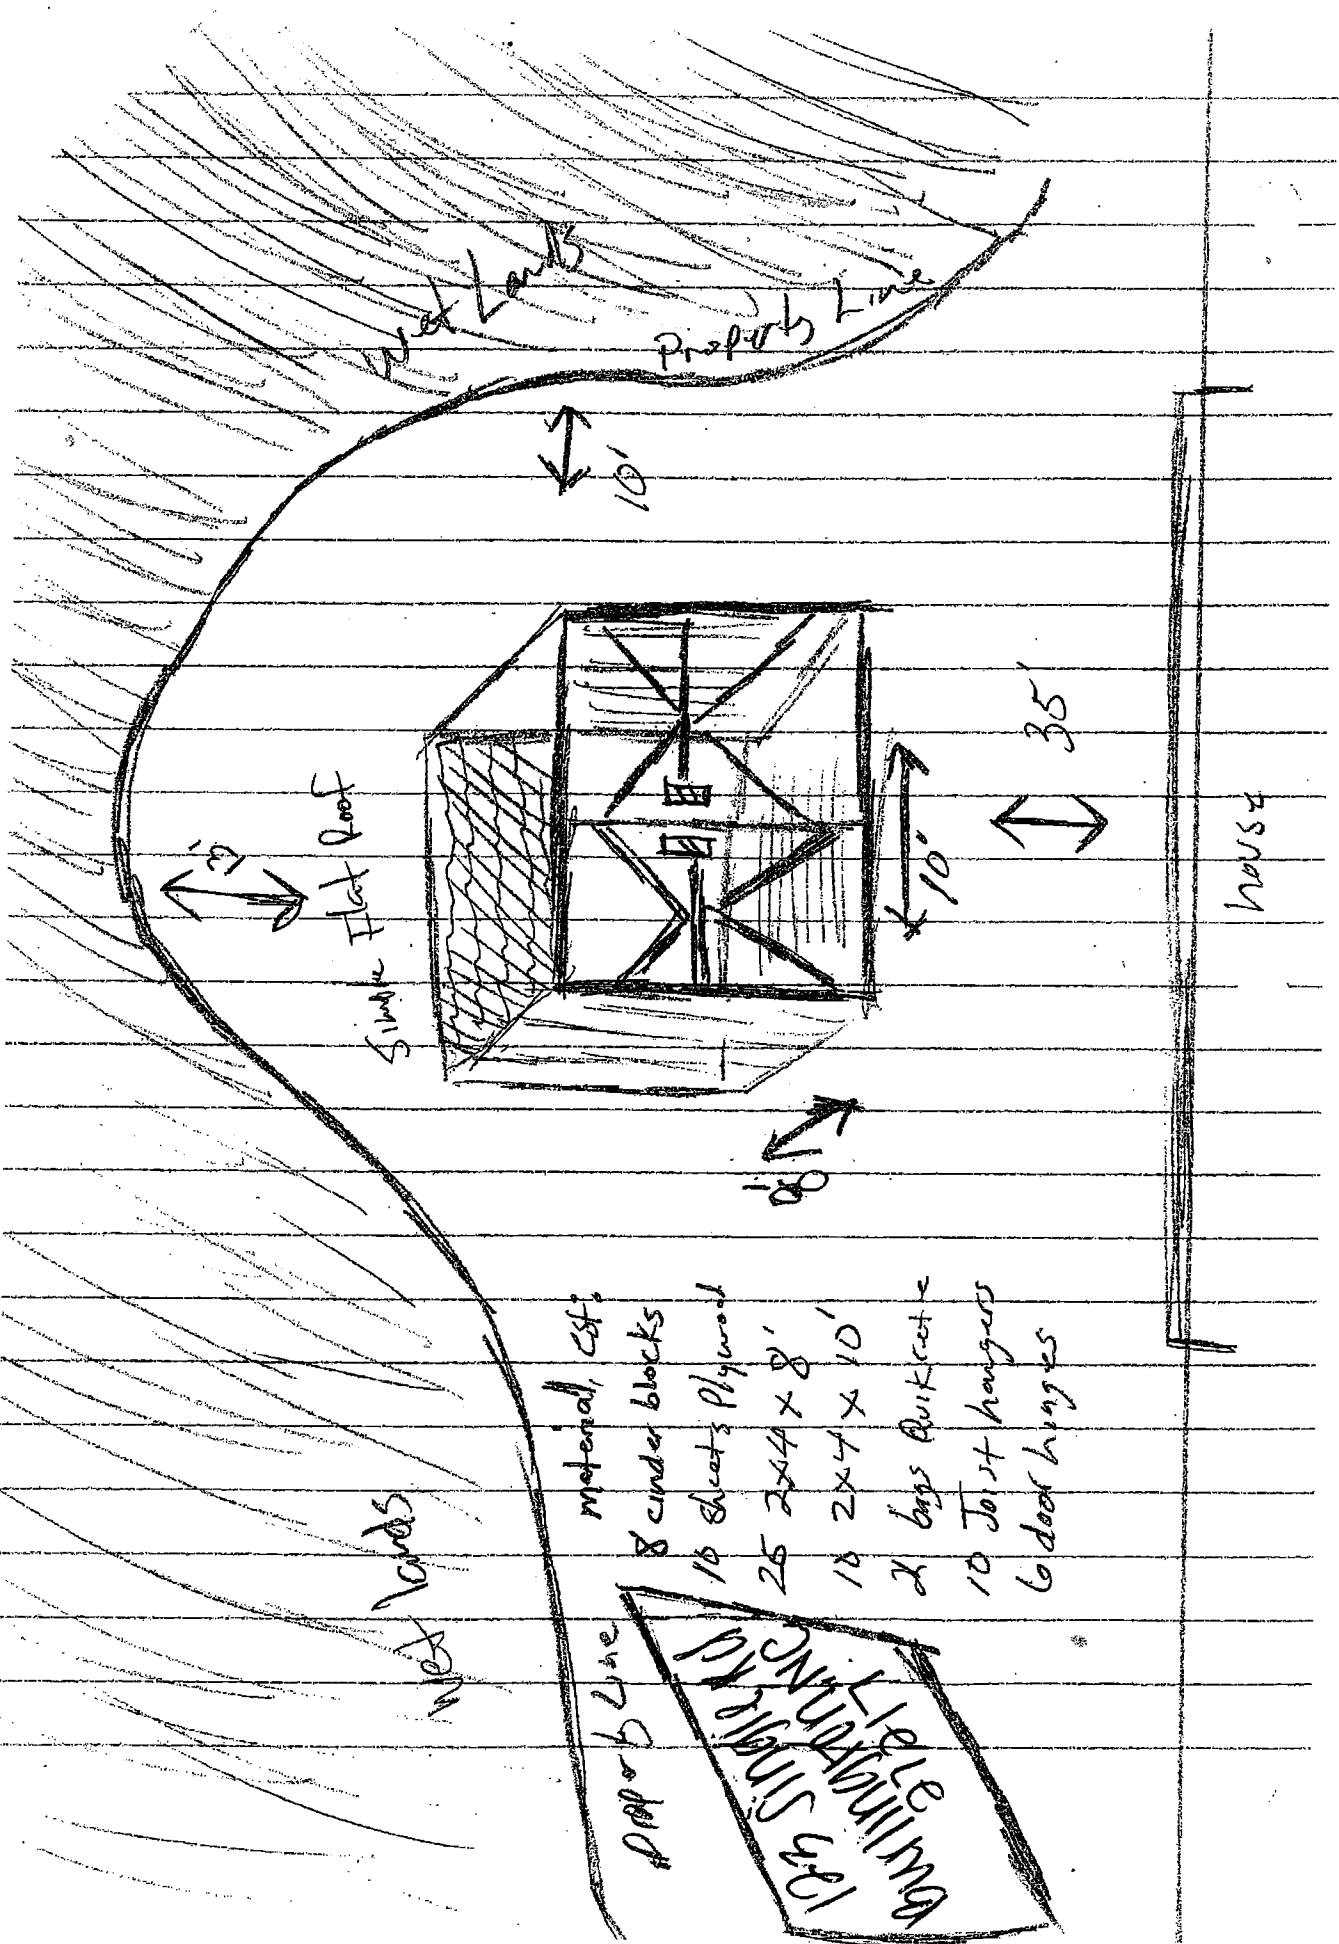 Wet Lands
Property Line
10'
Simple Flat Roof
3'
10'
35'
8'
house
wet lands
Property Line
material, Cst:
8 cinder blocks
10 Sheets Plywood
25 2x4 x 8'
10 2x4 x 10'
2 bags Quikcrete
10 Joist hangers
6 door hinges
124 Single Rd
Burlington NC
27217